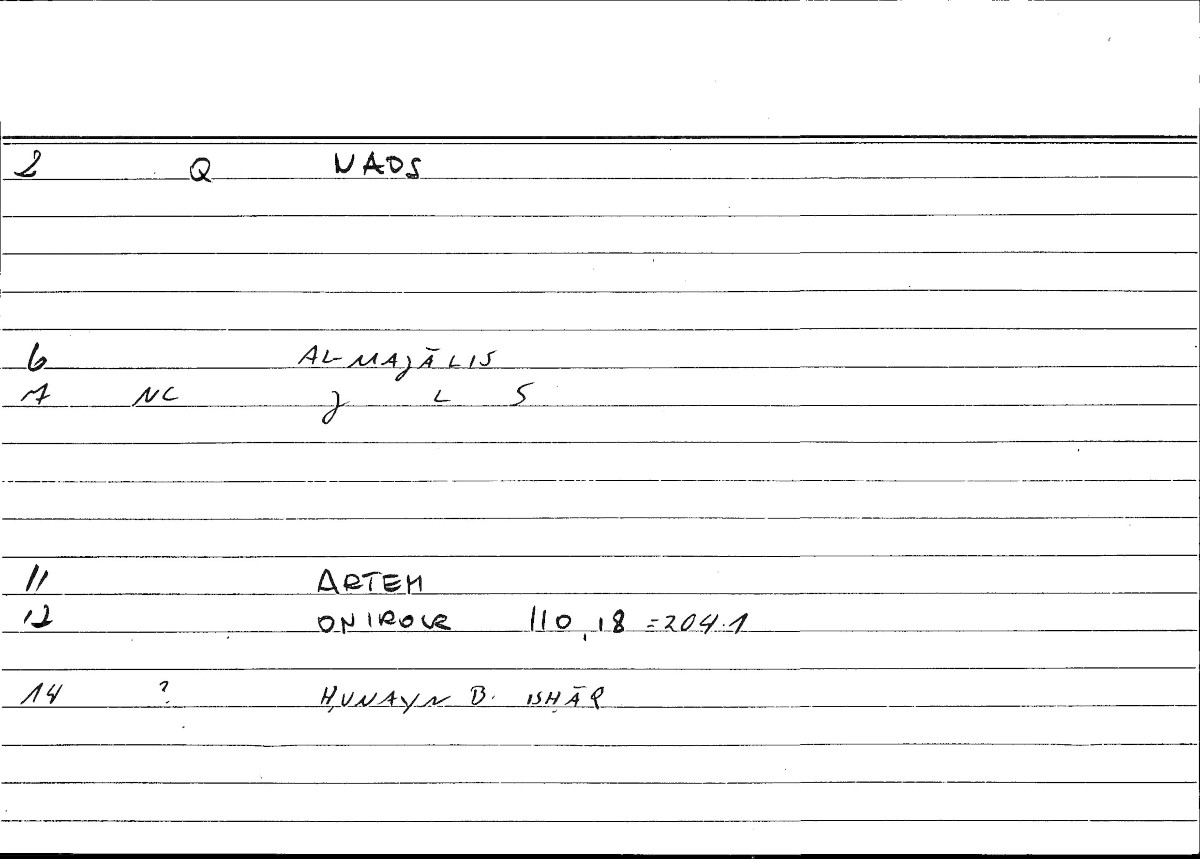 2 Q NADS
6 AL-MAJĀLIS
7 NC J L S
11 ARTEM
12 ONIROCR 110,18 =204.1
14 ? ḤUNAYN B. ISḤĀQ